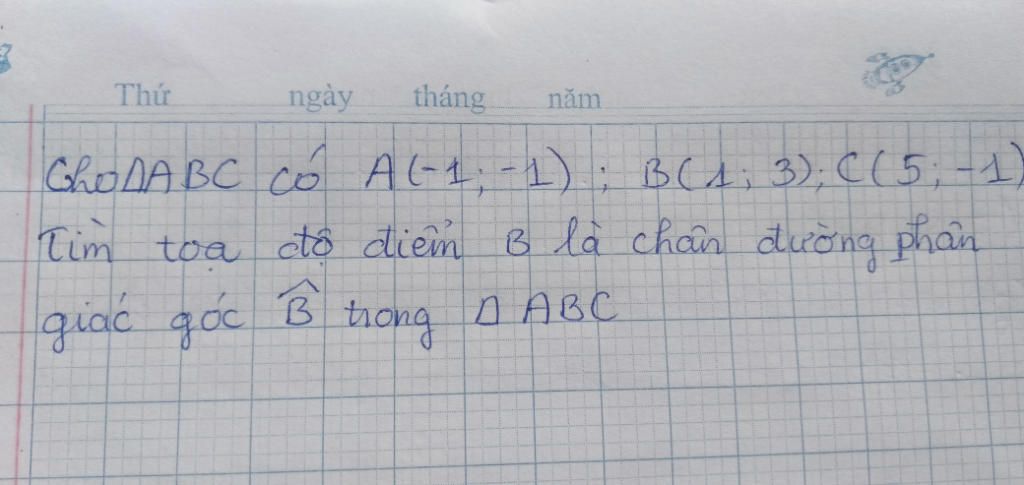 Thứ ngày tháng năm
Cho ΔABC có A(-1; -1); B(1; 3); C(5; -1)
Tìm toạ độ điểm B là chân đường phân
giác góc B̂ trong Δ ABC